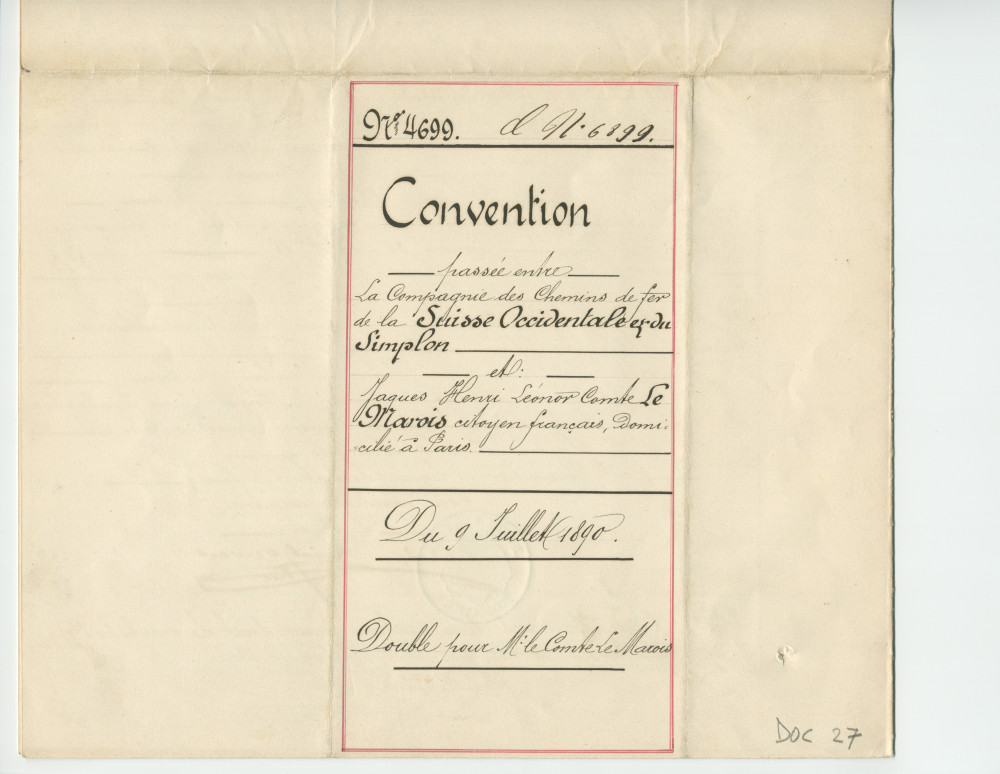 Nº 4699. d N. 6899.
Convention
passée entre
La Compagnie des Chemins de fer
de la Suisse Occidentale et du
Simplon
et:
Jaques Henri Léonor Comte Le
Marois citoyen français, Domi-
cilié à Paris.
Du 9 Juillet 1890.
Double pour Mr. le Comte Le Marois
DOC 27